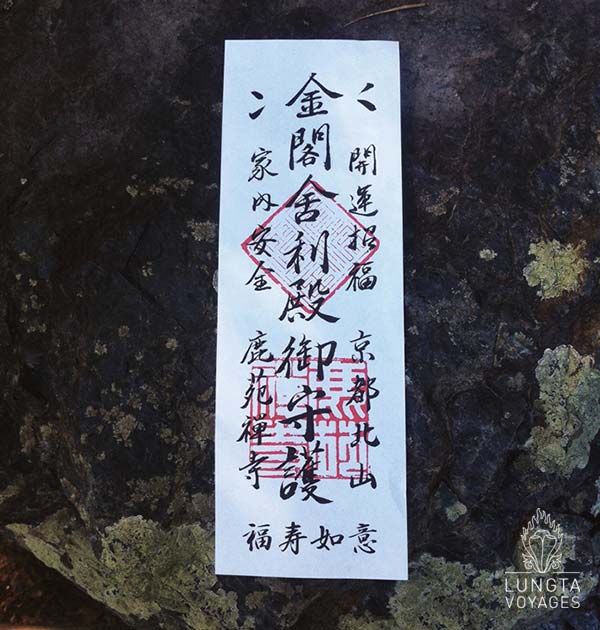 開運招福 京都北山
金閣舎利殿御守護
家内安全 鹿苑禅寺
意如寿福
LUNGTA
VOYAGES